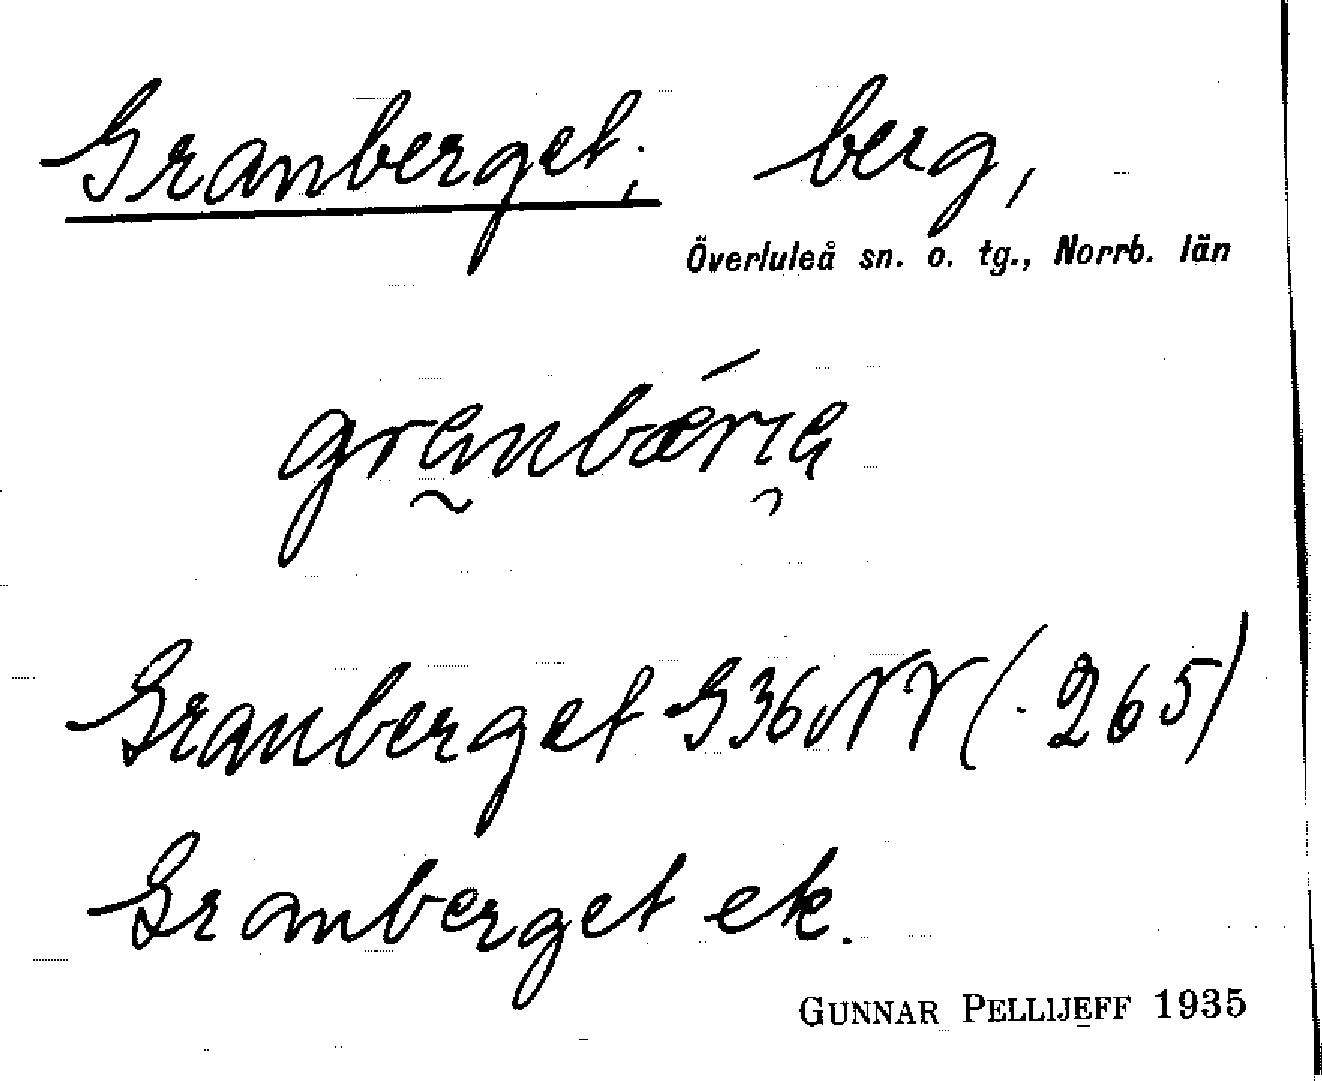 Granberget; berg,
Överluleå sn. o. tg., Norrb. län
Granberget G36NV (·265)
Granberget ek.
GUNNAR PELLIJEFF 1935